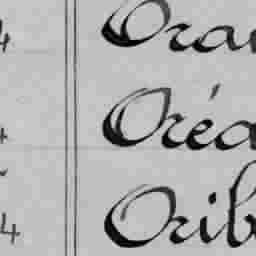 4 Ora
4 Oréa
4 Orib